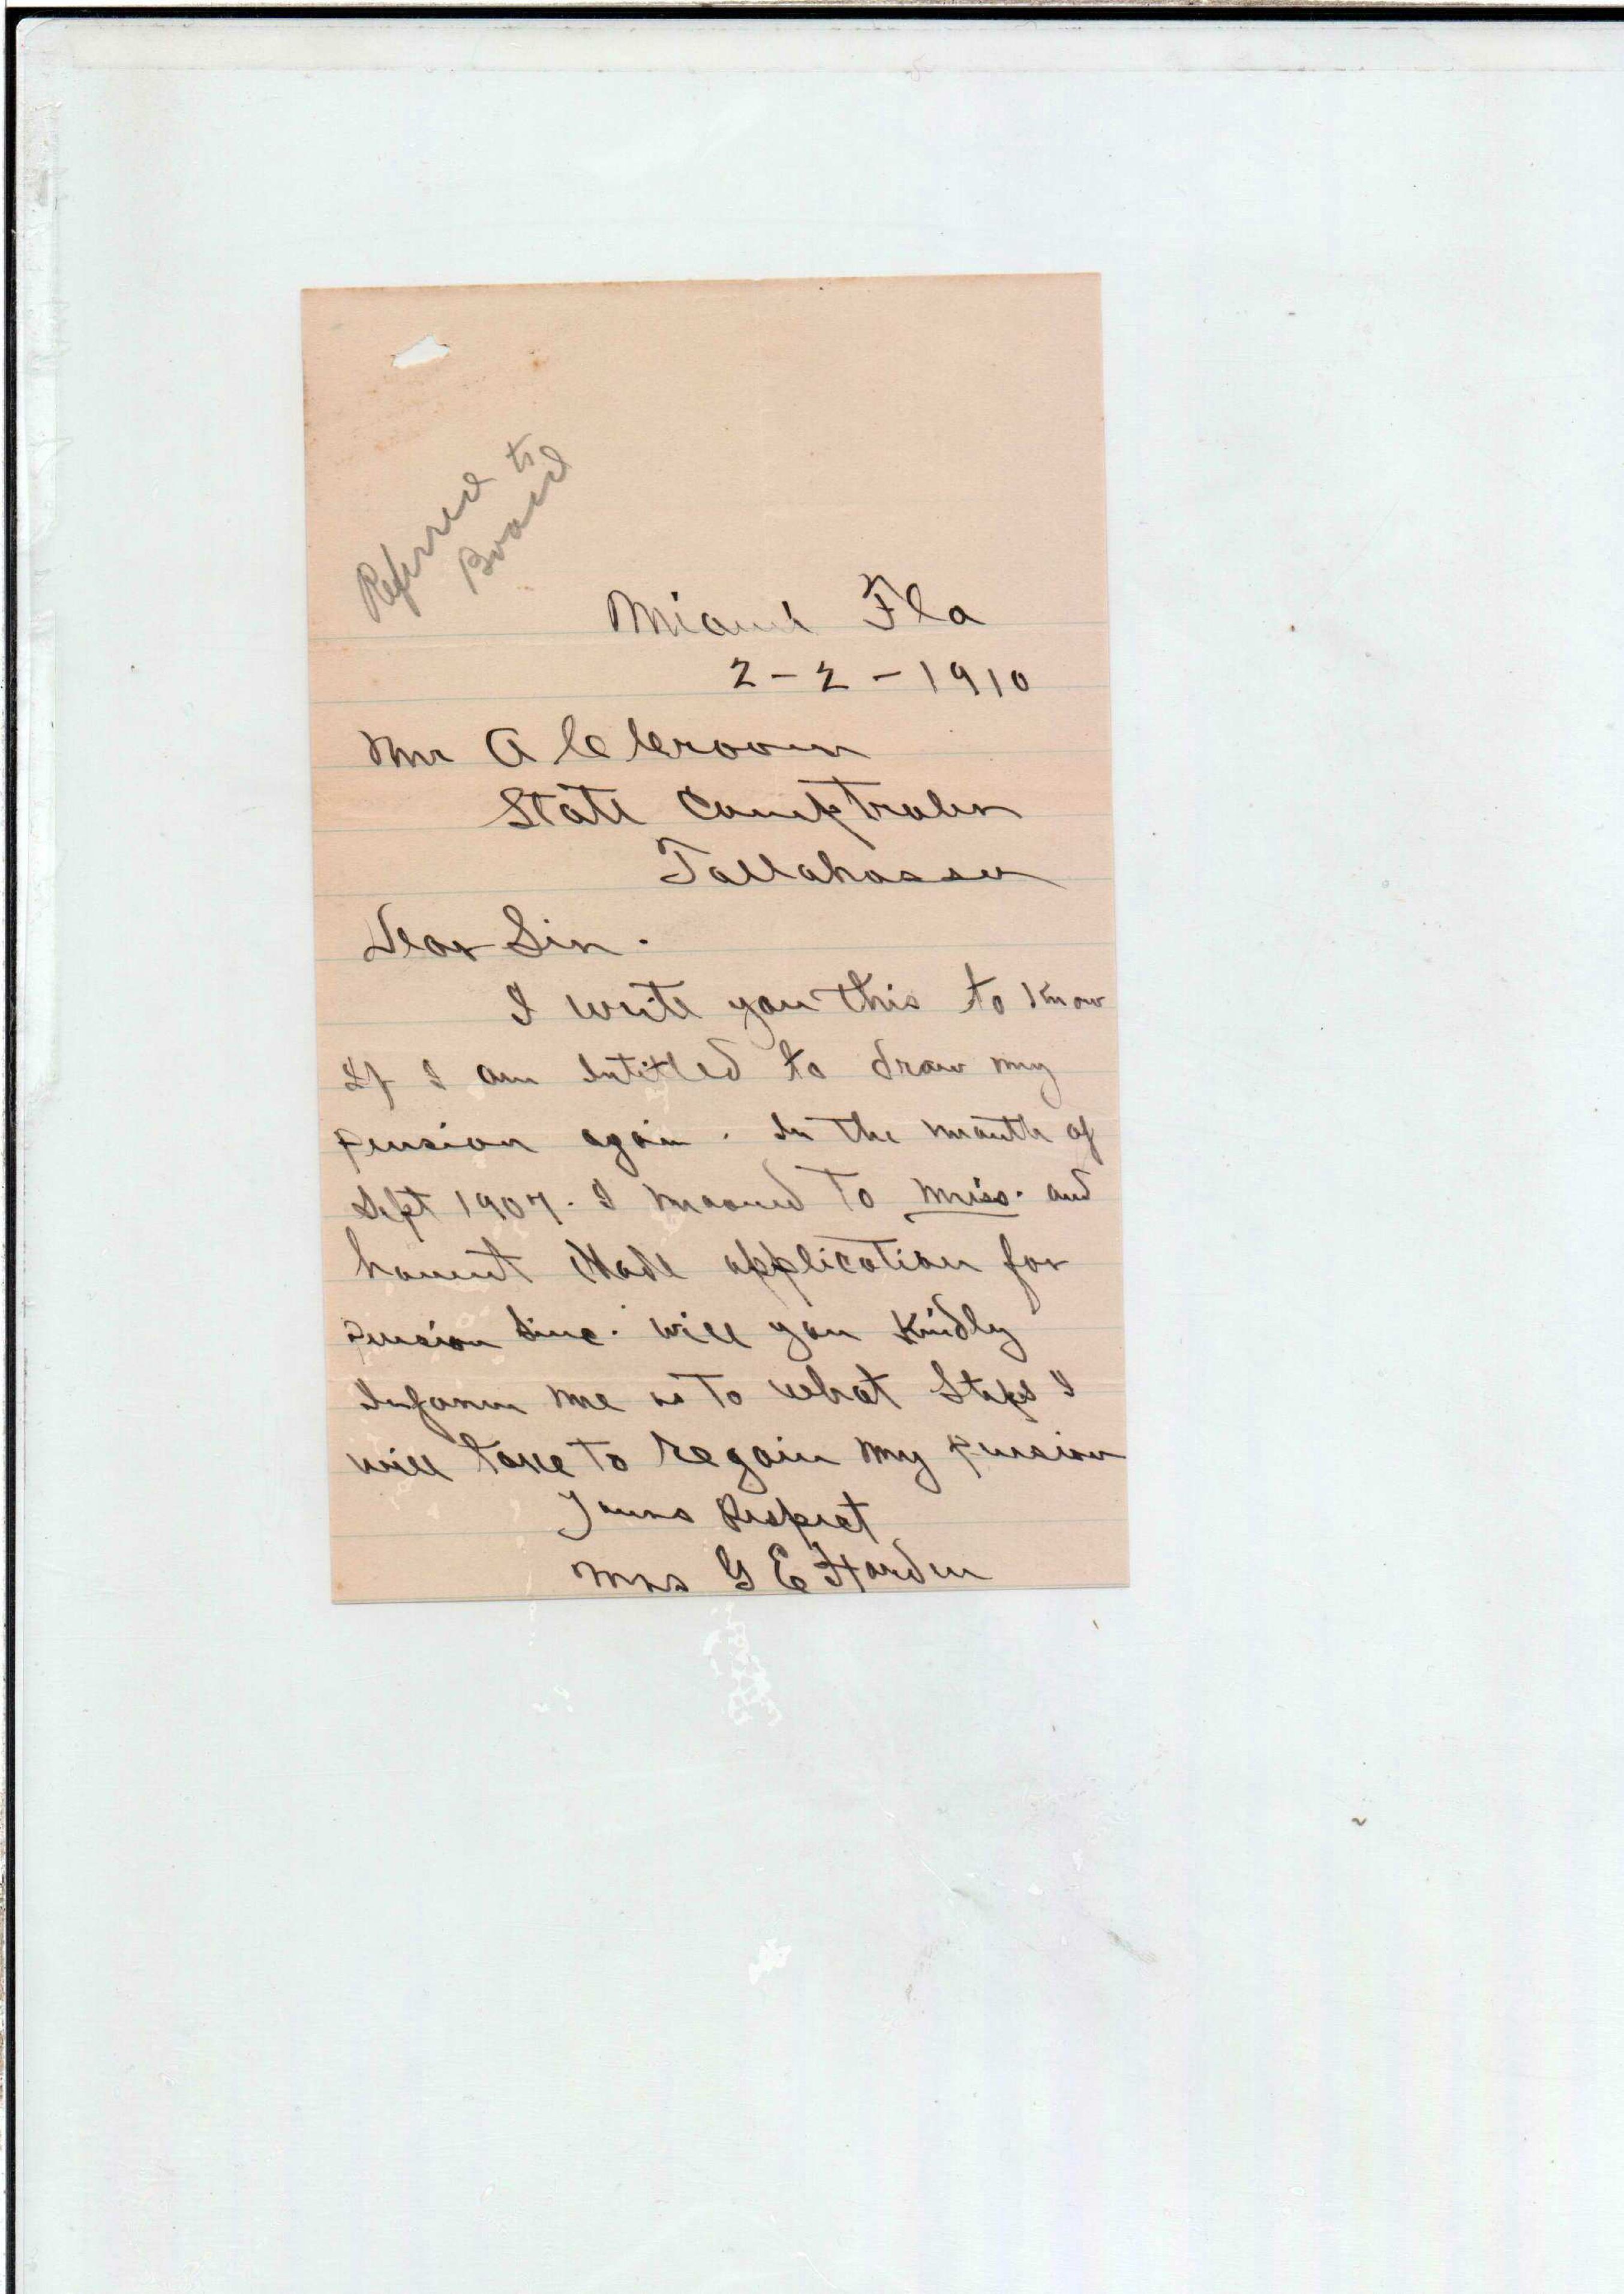 Referred to
Board
Miami Fla
2-2-1910
Mr A C Croom
State Comptroler
Tallahassee
Dear Sir.
I write you this to know
If I am Intitled to draw my
pension again. In the month of
Sept 1907. I mooved To Miss. and
havent Made application for
Pension Sinc. Will you Kindly
Inform me as To what Steps I
will take To regain my pension
Yours Respect
Mrs G E Harden